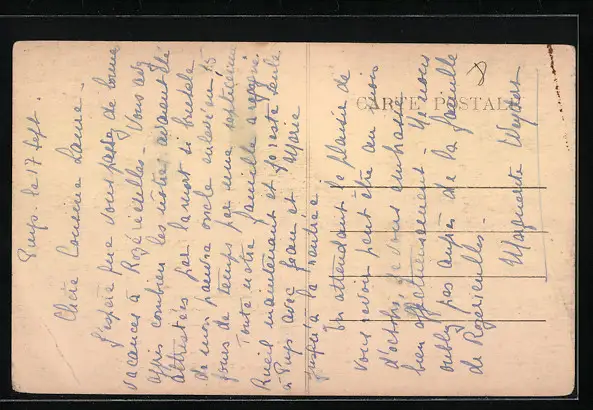 Puys le 17 Sept.
Chère Cousine Laure -
J'espère que vous passez de bonnes
vacances à Rozérieulles - Vous avez
appris combien les nôtres avaient été
attristées par la mort si brutale
de mon pauvre oncle enlevé en 15
jours de temps par une septicémie
Toute notre famille a regagné
Rueil maintenant et je reste seule
à Puys avec Jean et Marie
jusqu'à la rentrée
En attendant le plaisir de
vous revoir peut être au mois
d'octobre, je vous embrasse
bien affectueusement - Ne nous
oubliez pas auprès de la famille
de Rozérieulles -
Marguerite
CARTE POSTALE